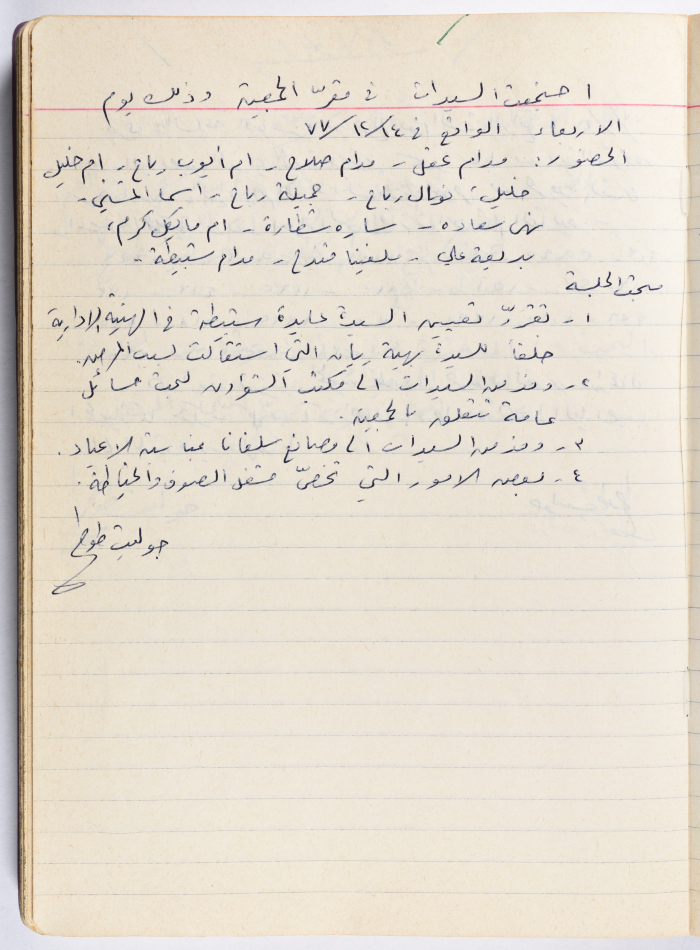 اجتمعت السيدات في مقرّ الجمعية وذلك يوم
الاربعاء الواقع في ١٤/١٢/٧٧
الحضور: مدام عقل - مدام صلاح - ام أيوب رباح - ام خليل
خليل، نوال رباح - جميلة رباح - اسما المتني -
نهى سعاده - ساره شطارة - ام مايكل كرم،
بديعة علي - سلفينا قندح - مدام سنبطة -
الجلسة
١ - تقررّ تعيين السيدة عايدة سنبطة في الهيئة الادارية
خلفاً للسيدة بهية ريان التي استقالت لسبب المرض.
٢ - وفد من السيدات الى مكتب الشؤون لبحث مسائل
عامة تتعلق بالجمعية.
٣ - وفد من السيدات الى مصانع سلفانا بمناسبة الاعياد.
٤ - بعض الامور التي تخصّ مشغل الصوف والخياطة.
جوليت